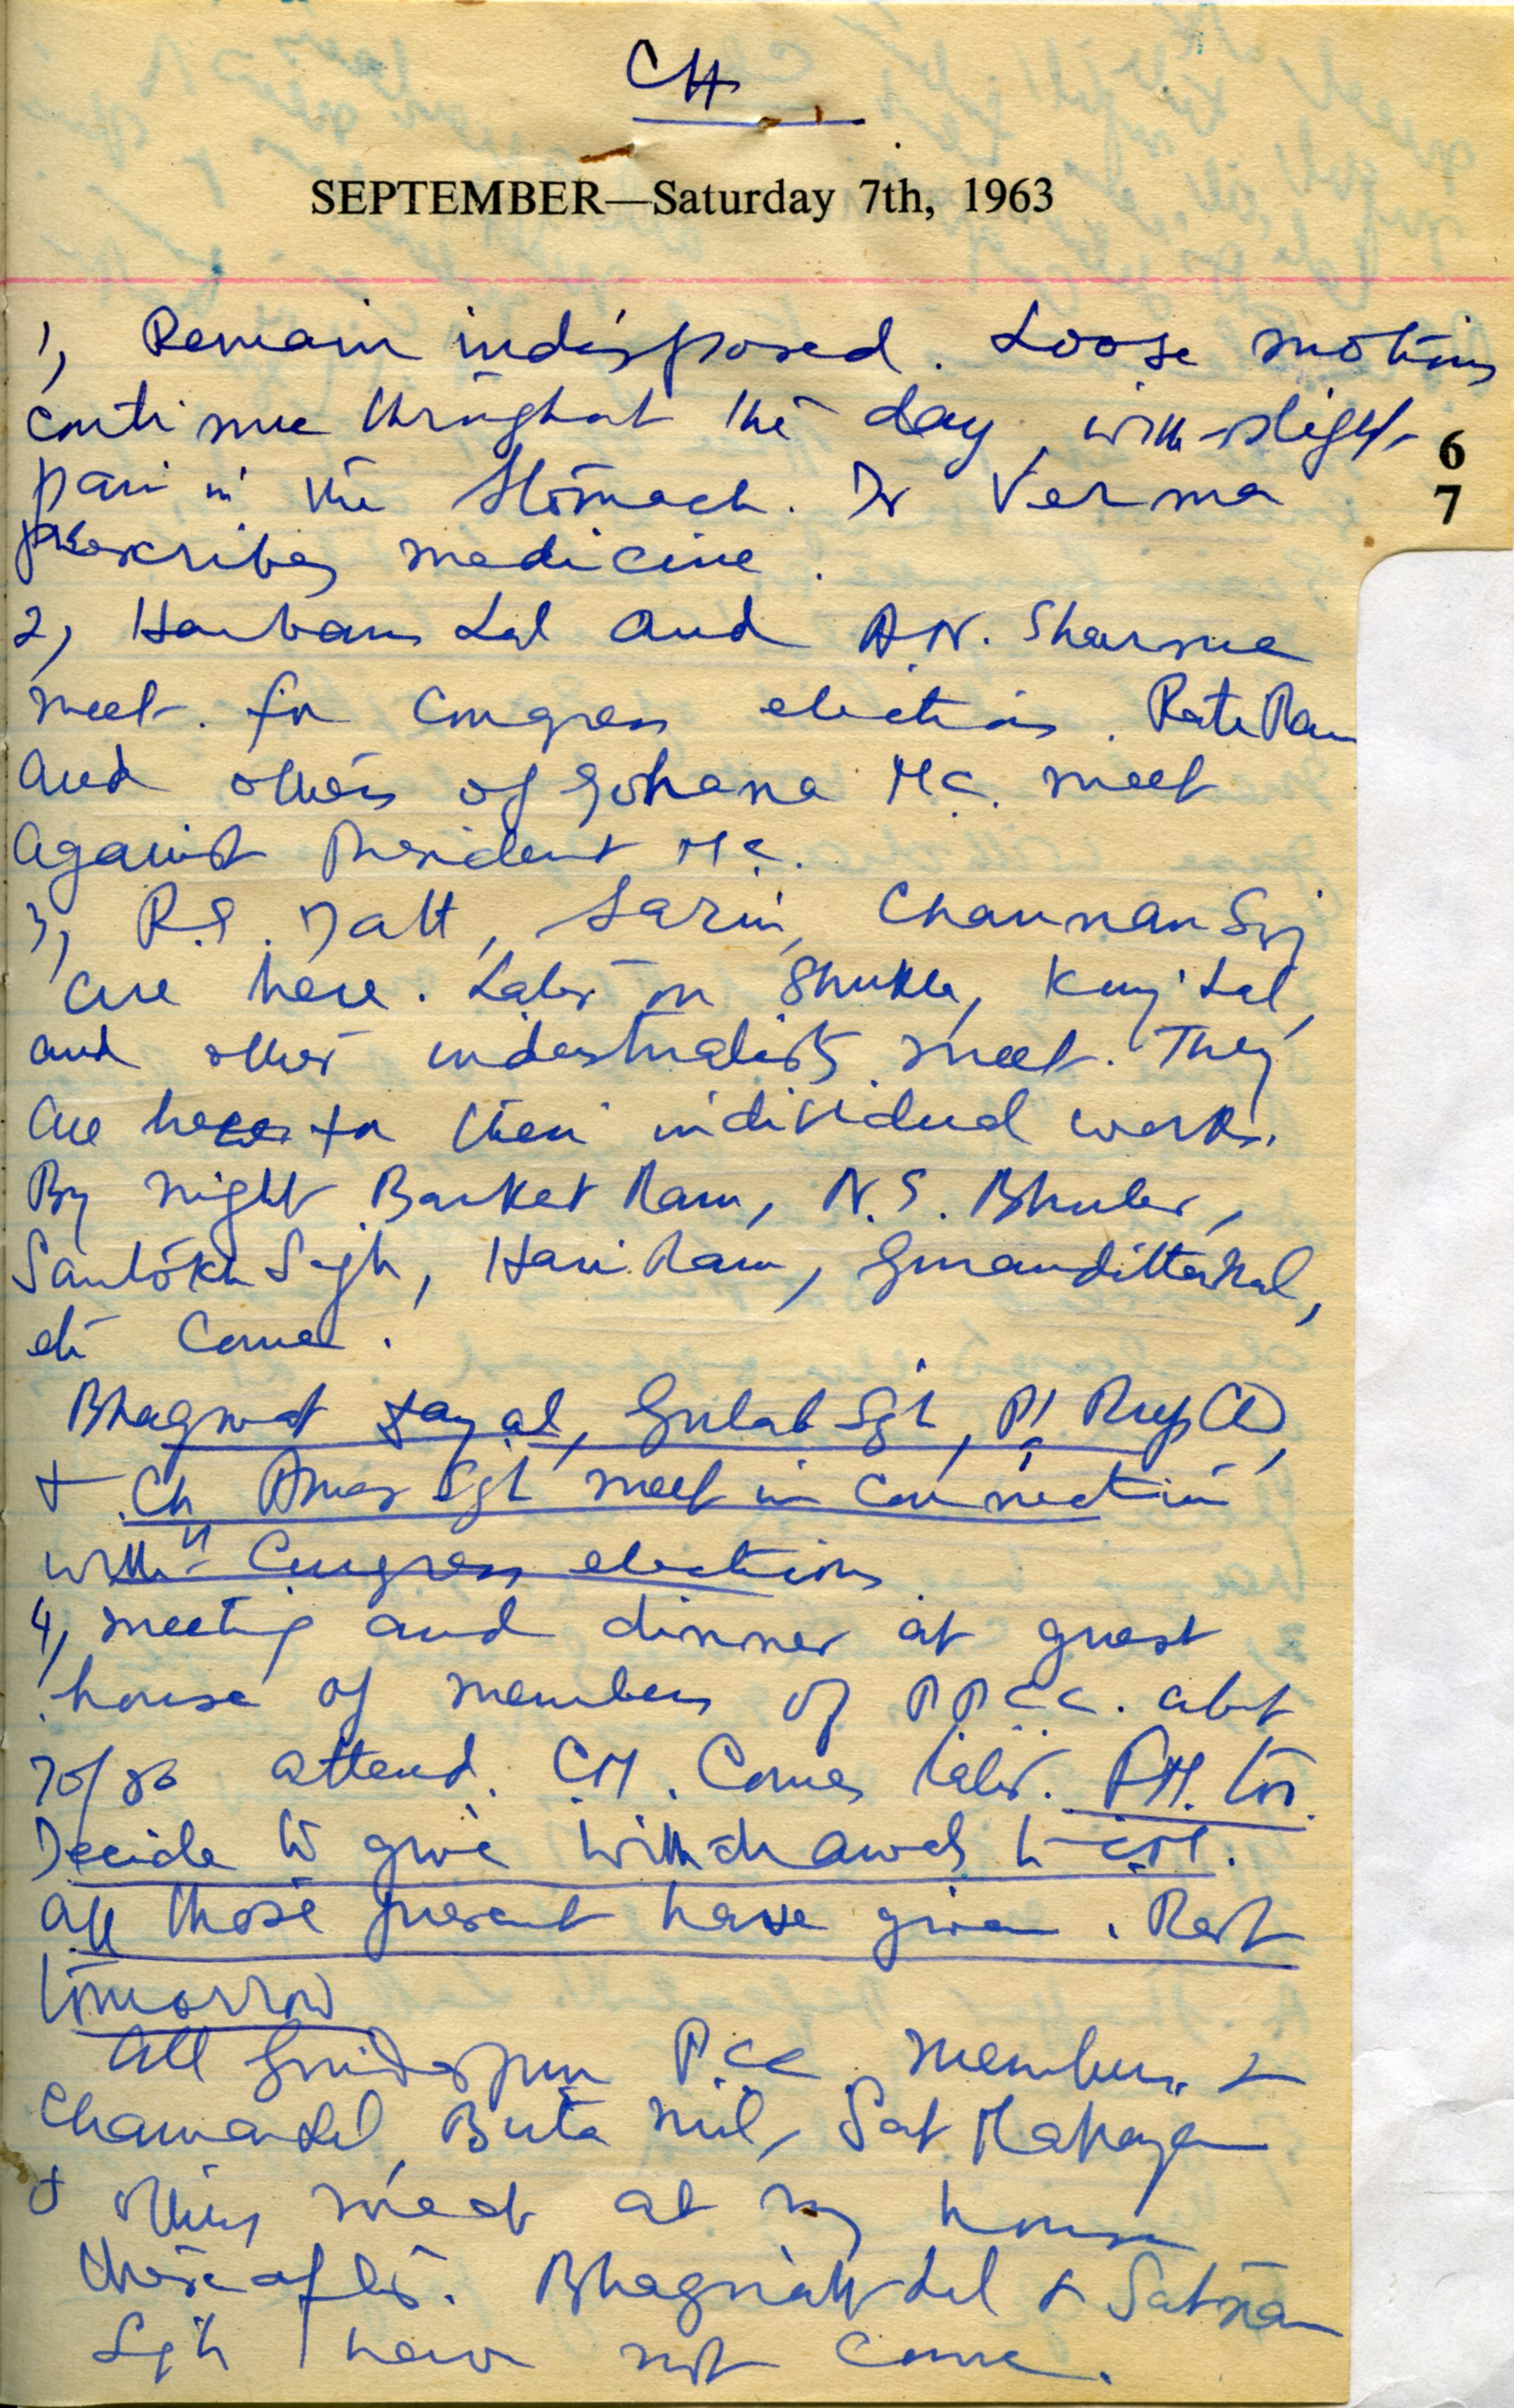 CH
SEPTEMBER—Saturday 7th, 1963
1, Remain indisposed. Loose motions
continue throughout the day, with slight
6
pain in the stomach. Dr Verma
7
prescribes medicine.
2, Harbans Lal and A.N. Sharma
meet. for Congress elections.
and others of Gohana M.C. meet
against President M.C.
3, Datt, Sarin, Channan Sgh
are here. Later on Shukla, Lal,
and other industrialists meet. They
are here for their individual works.
By night Barket Ram, N.S. Bhuler,
Santokh Sgh, Hari Ram, Gurandittamal,
etc come.
Bhagwat Dayal, Gulab Sgh, Pt Rup Cd,
+ Ch Amar Sgh meet in connection
with Congress elections
4, meeting and dinner at guest
house of members of PPCC. abt
70/80 attend. C.M. Comes later. P.M. too.
Decide to give withdrawals to C.M.
all those present have given. Rest
tomorrow
All Gurdaspur P.C.C. members +
Chaman Lal, Buta Mal, Sat Mahajan
+ others meet at my house
thereafter. Lal + Satnam
Sgh have not come.